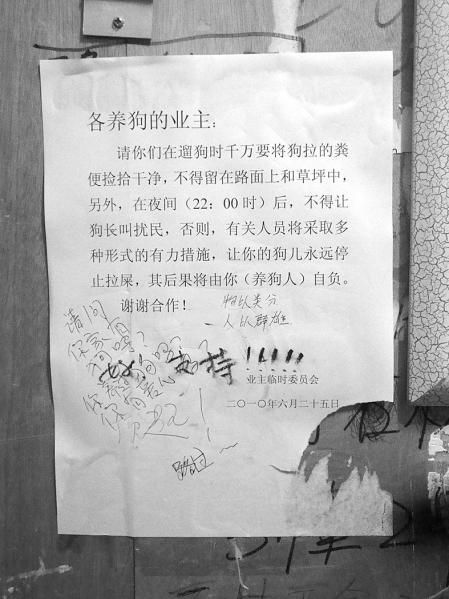 各养狗的业主:
请你们在遛狗时千万要将狗拉的粪
便捡拾干净,不得留在路面上和草坪中,
另外,在夜间(22:00时)后,不得让
狗长叫扰民,否则,有关人员将采取多
种形式的有力措施,让你的狗儿永远停
止拉屎,其后果将由你(养狗人)自负。
谢谢合作!
物以类分
人以群雄
请问
你家有
支持!!!!!
业主临时委员会
二〇一〇年六月二十五日
路过